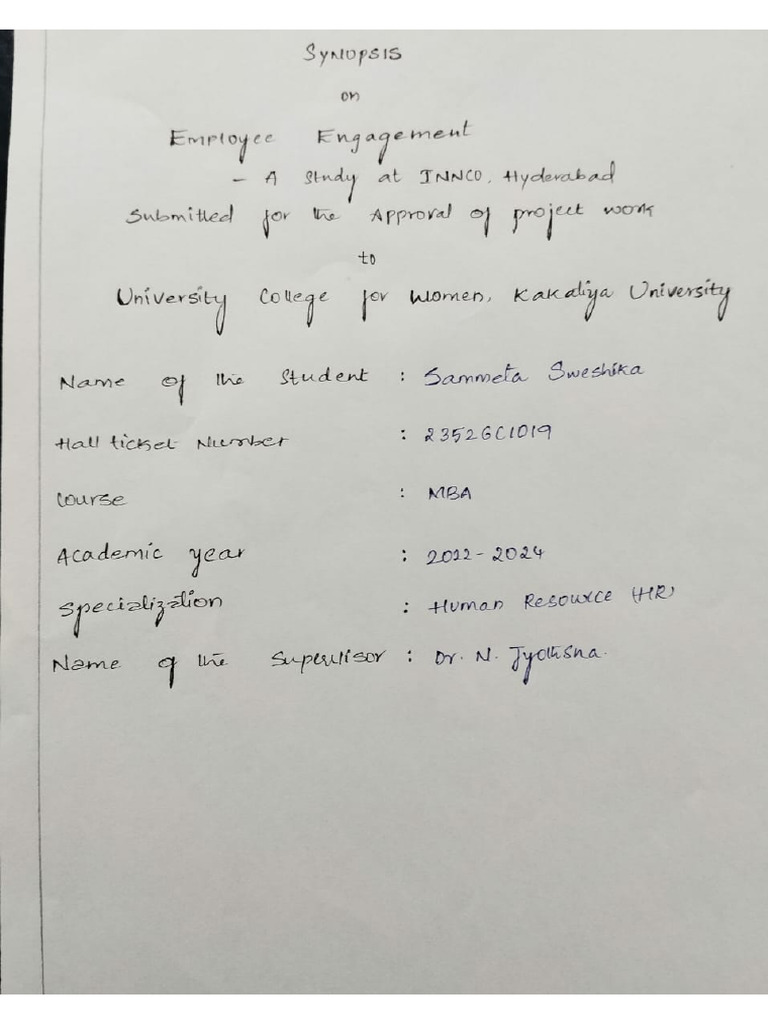 SYNOPSIS
on
Employee Engagement
- A Study at INNCO, Hyderabad
Submitted for the Approval of project work
to
University College for Women, Kakatiya University
Name of the Student : Sammeta Sweshika
Hall ticket Number : 23526C1019
Course : MBA
Academic year : 2022-2024
Specialization : Human Resource (HR)
Name of the Supervisor : Dr. N. Jyothsna.